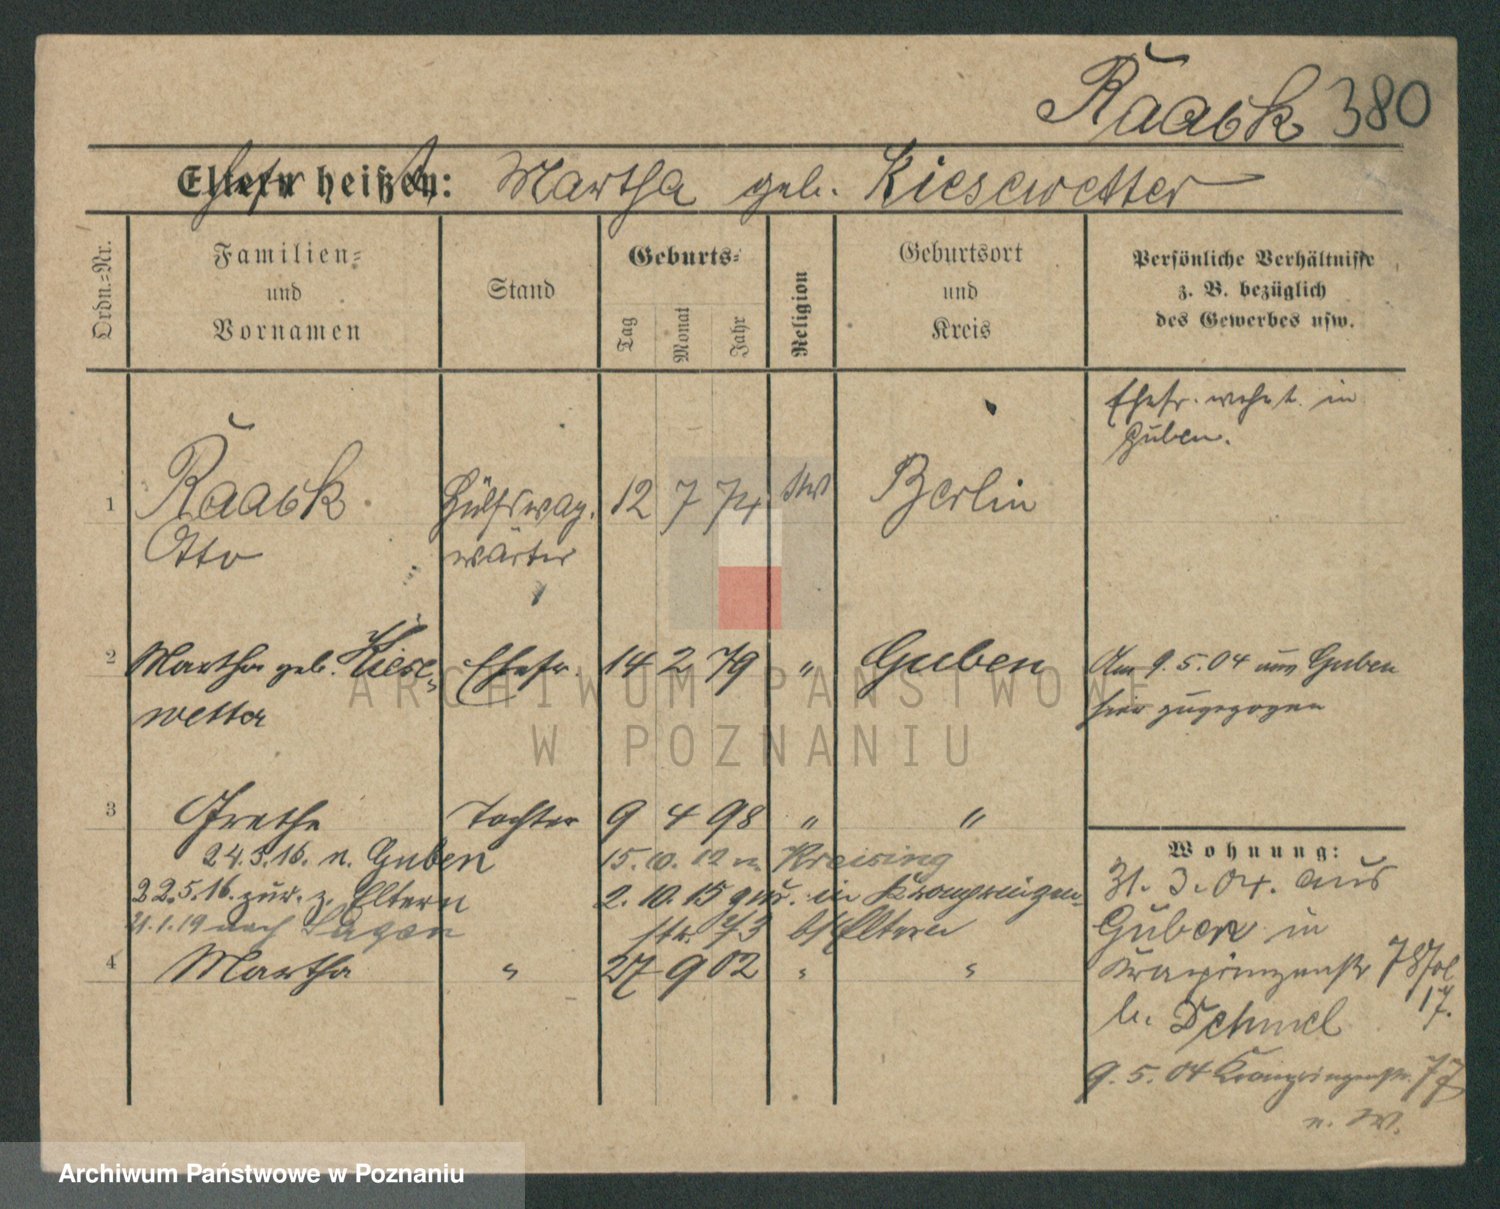 Raabk 380
Eltern heißen: Ehefr Martha geb. Kiesewetter
Ordn.-Nr.
Familien-
und
Vornamen
Stand
Geburts-
Tag
Monat
Jahr
Religion
Geburtsort
und
Kreis
Persönliche Verhältnisse
z. B. bezüglich
des Gewerbes usw.
Ehefr. wohnt in
Guben.
1 Raabk Hülfswag. 12 7 74 Berlin
Otto wärter
2 Martha geb. Kiese- Ehefr. 14 2 79 " Guben Am 9.5.04 aus Guben
wetter hier zugezogen
3 Grethe Tochter 9 4 98 " "
24.3.16. n. Guben 15.10.12 n Kreising
22.5.16. zur. z. Eltern 2.10.15 zur. in Kronprinzen-
21.1.19 nach str. 73 bf Eltern
4 Martha " 27 9 02 " "
Wohnung:
31.3.04. aus
Guben in
Kronprinzenstr 78
17.
b.
9.5.04 Kronprinzenstr. 77
n. W.
ARCHIWUM PAŃSTWOWE
W POZNANIU
Archiwum Państwowe w Poznaniu